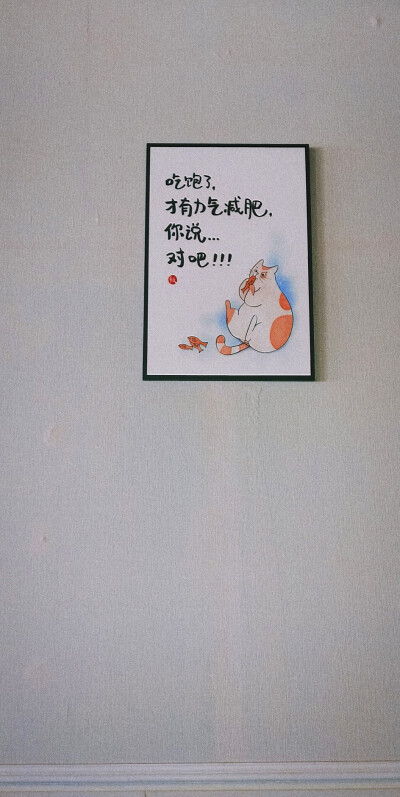 吃饱了,
才有力气减肥,
你说...
对吧!!!